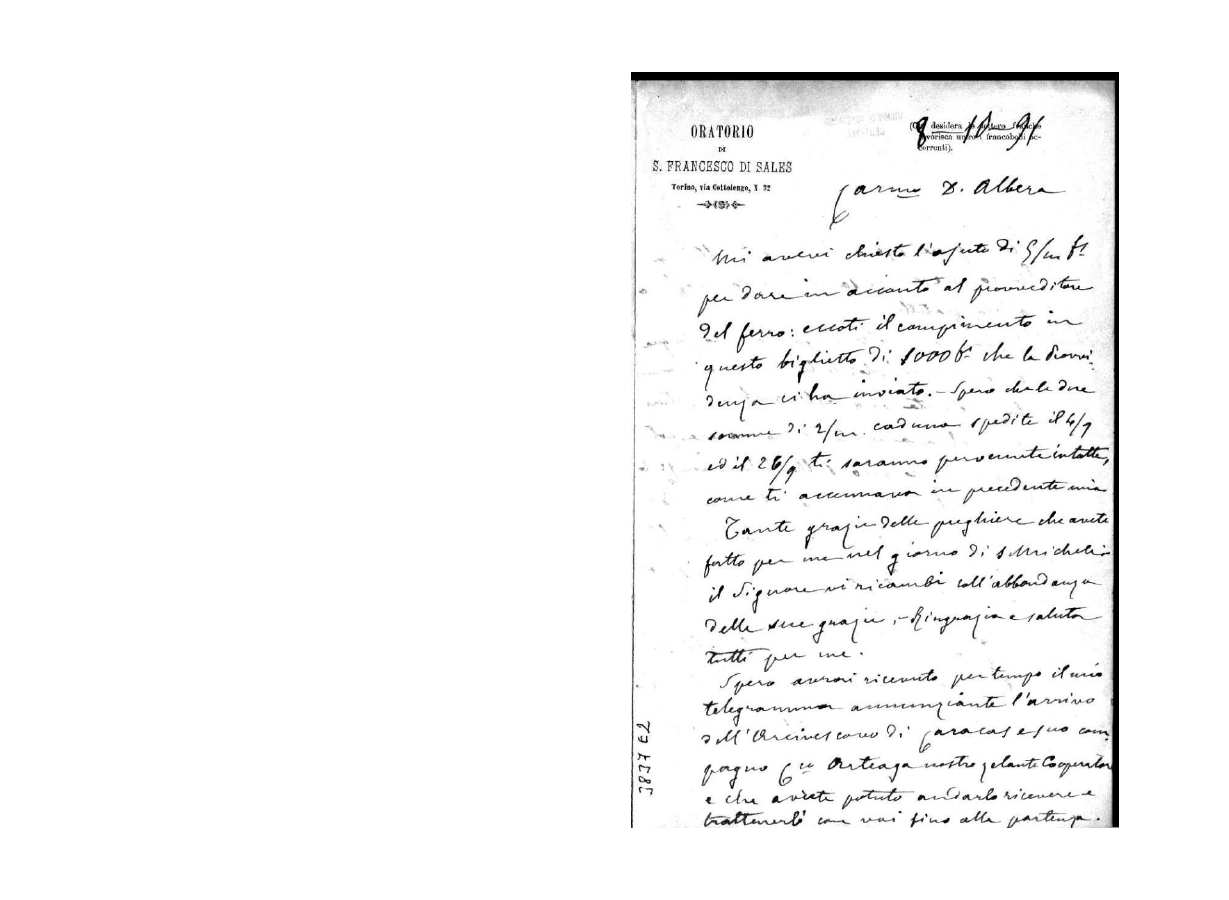 ORATORIO
DI
S. FRANCESCO DI SALES
Torino, via Cottolengo, N. 32
desidera
francobolli oc-
correnti).
Carmo D. Albera
Mi avevi chiesto l'ajuto di 5/m fr
per dare in acconto al provveditore
del ferro: eccoti il compimento in
questo biglietto di 1000 fr che la Provvi
denza ci ha inviato. - Spero che le due
somme di 2/m. caduna spedite il 4/9
ed il 26/9 ti saranno pervenute intatte,
come ti accennava in precedente mia
Tante grazie delle preghiere che avete
fatto per me nel giorno di S. Michele
il Signore vi ricambi coll'abbondanza
delle sue grazie, - Ringrazia e saluta
tutti per me.
Spero avrai ricevuto per tempo il mio
telegramma annunziante l'arrivo
dell'Arcivescovo di Caracas e suo com
pagno Arteaga nostro zelante Cooperatore
e che avrete potuto andarlo ricevere e
trattenerli con voi fino alla partenza.
3837 E2